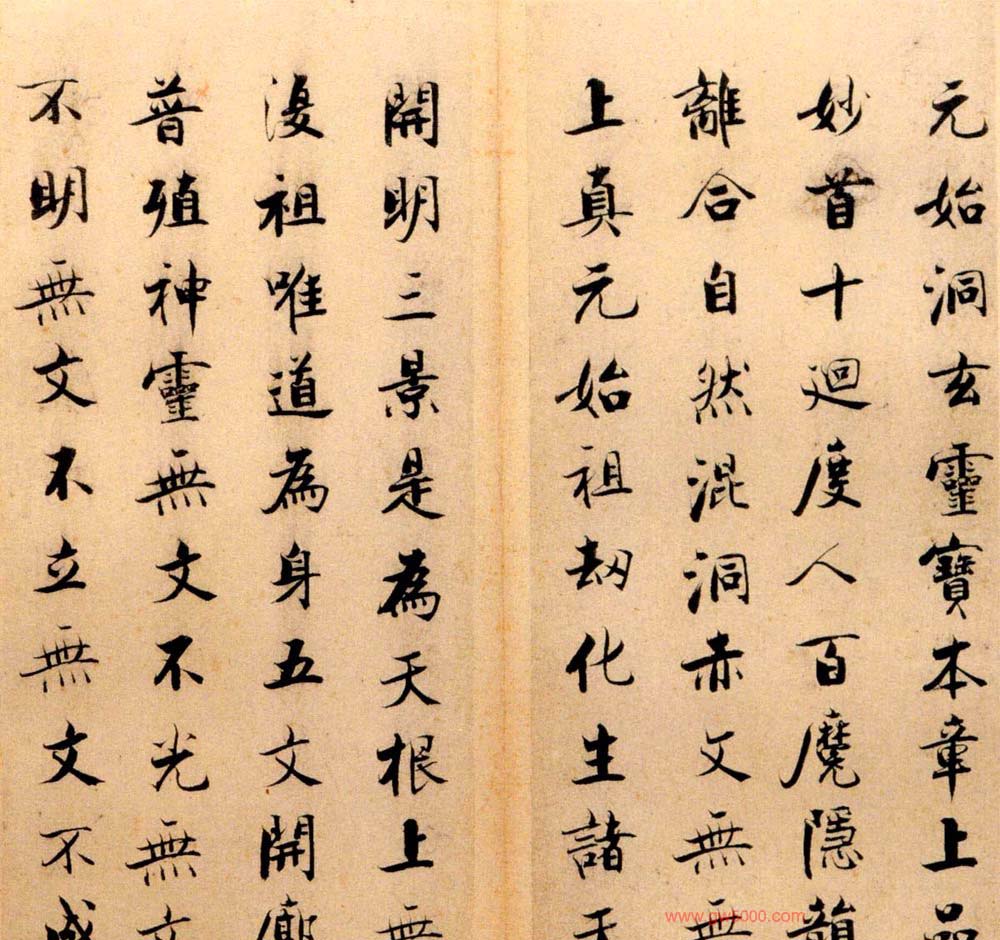 元始洞玄靈寶本章上品
妙首十迴度人百魔隱韻
離合自然混洞赤文無無
上真元始祖劫化生諸天
開明三景是為天根上無
復祖唯道為身五文開廓
普殖神靈無文不光無文
不明無文不立無文不成
www.gw5000.com